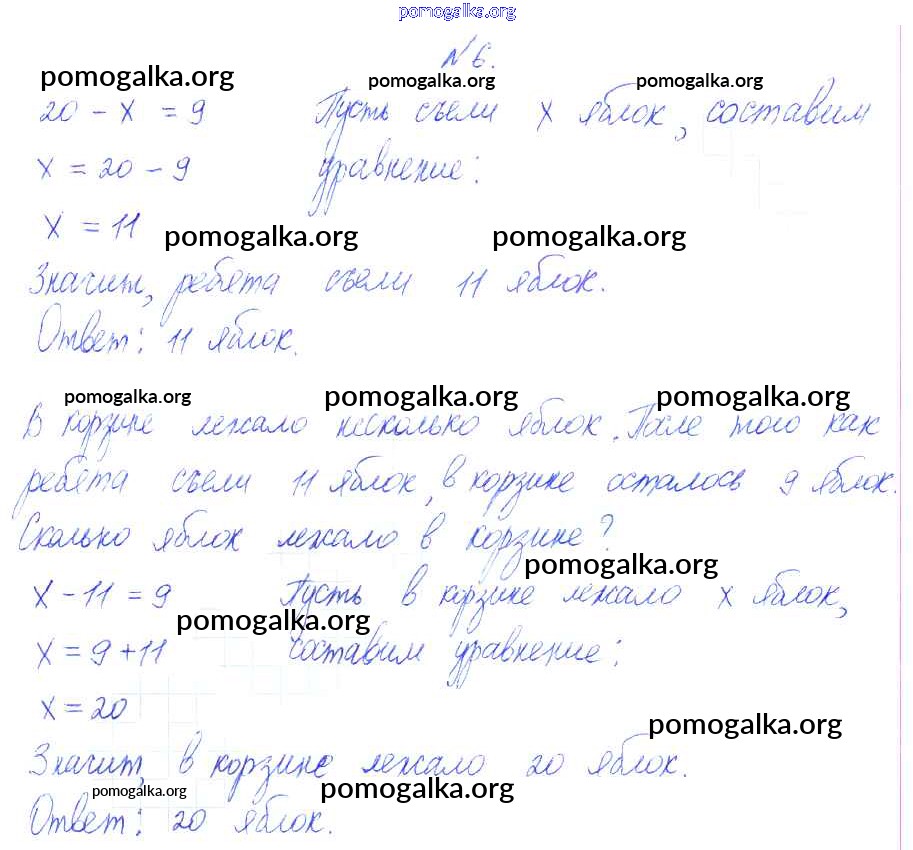 pomogalka.org
№ 6.
pomogalka.org pomogalka.org pomogalka.org
20 - x = 9 Пусть съели x яблок, составим
x = 20 - 9 уравнение:
x = 11
pomogalka.org pomogalka.org
Значит, ребята съели 11 яблок.
Ответ: 11 яблок.
pomogalka.org pomogalka.org pomogalka.org
В корзине лежало несколько яблок. После того как
ребята съели 11 яблок, в корзине осталось 9 яблок.
Сколько яблок лежало в корзине?
pomogalka.org
x - 11 = 9 Пусть в корзине лежало x яблок,
pomogalka.org
x = 9 + 11 составим уравнение:
x = 20
pomogalka.org
Значит, в корзине лежало 20 яблок.
pomogalka.org pomogalka.org
Ответ: 20 яблок.